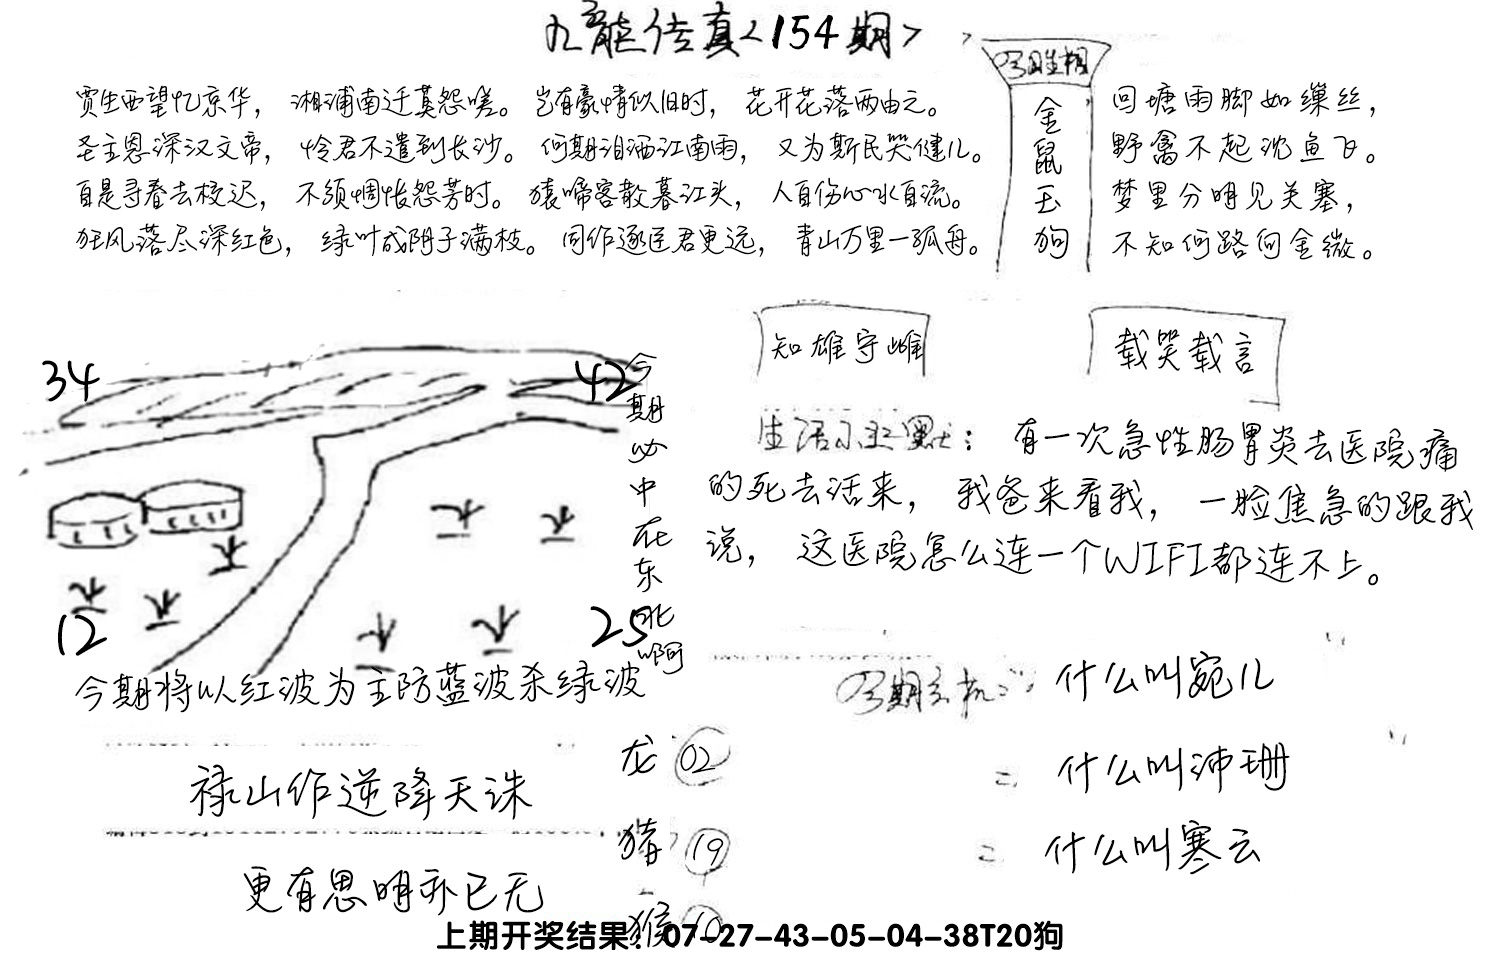 九龍传真<154期>
今日生相
金鼠玉狗
贾生西望忆京华，湘浦南迁莫怨嗟。岂有豪情似旧时，花开花落两由之。
圣主恩深汉文帝，怜君不遣到长沙。何期泪洒江南雨，又为斯民哭健儿。
自是寻春去校迟，不须惆怅怨芳时。猿啼客散暮江头，人自伤心水自流。
狂风落尽深红色，绿叶成阴子满枝。同作逐臣君更远，青山万里一孤舟。
回塘雨脚如缫丝，
野禽不起沈鱼飞。
梦里分明见关塞，
不知何路向金微。
34
42
12
25
今期必中在东北啊
今期将以红波为主防蓝波杀绿波
知雄守雌
载哭载言
生活小幽默：有一次急性肠胃炎去医院痛
的死去活来，我爸来看我，一脸焦急的跟我
说，这医院怎么连一个WIFI都连不上。
今期玄机：什么叫宛儿
= 什么叫沛珊
= 什么叫寒云
禄山作逆降天诛
更有思明亦已无
龙 02
猪 19
猴 10
上期开奖结果：07-27-43-05-04-38T20狗